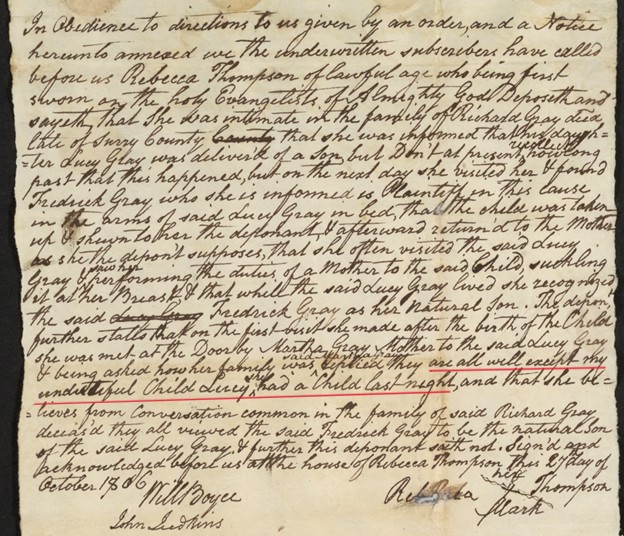 In Obedience to directions to us given by an order, and a Notice
hereunto annexed we the underwritten subscribers have called
before us Rebecca Thompson of lawful age who being first
sworn on the holy Evangelists of Almighty God Deposeth and
sayeth, that She was intimate in the family of Richard Gray dec'd
late of Surry County County that she was informed that his daugh-
=ter Lucy Gray was deliver'd of a Son, but Don't at present, recollect how long
past that this happened, but on the next day she visited her & found
Fredrick Gray, who she is informed is Plaintiff in this cause
in the arms of said Lucy Gray in bed, that the child was taken
up & shewn to her the deponant, & afterward return'd to the Mother
as she the depon't supposes, that she often visited the said Lucy
Gray & saw her performing the duties of a Mother to the said Child, suckling
it at her Breast, & that while the said Lucy Gray lived she recognized
the said Lucy Gray Fredrick Gray as her Natural Son. The depon,
further stalls that on the first visit she made after the birth of the Child
she was met at the Door by Martha Gray Mother to the said Lucy Gray
& being asked how her family was said Martha Gray replied they are all well except my
undutiful Child Lucey she had a Child last night, and that she be-
=lieves from Conversation common in the family of said Richard Gray
deceas'd they all viewed the said Fredrick Gray to be the natural Son
of the said Lucy Gray, & further this deponant saith not. Sign'd and
acknowledged before us at the house of Rebecca Thompson this 27 day of
October 1806
Will Boyce
Rebecca her Thompson
John Judkins
Mark